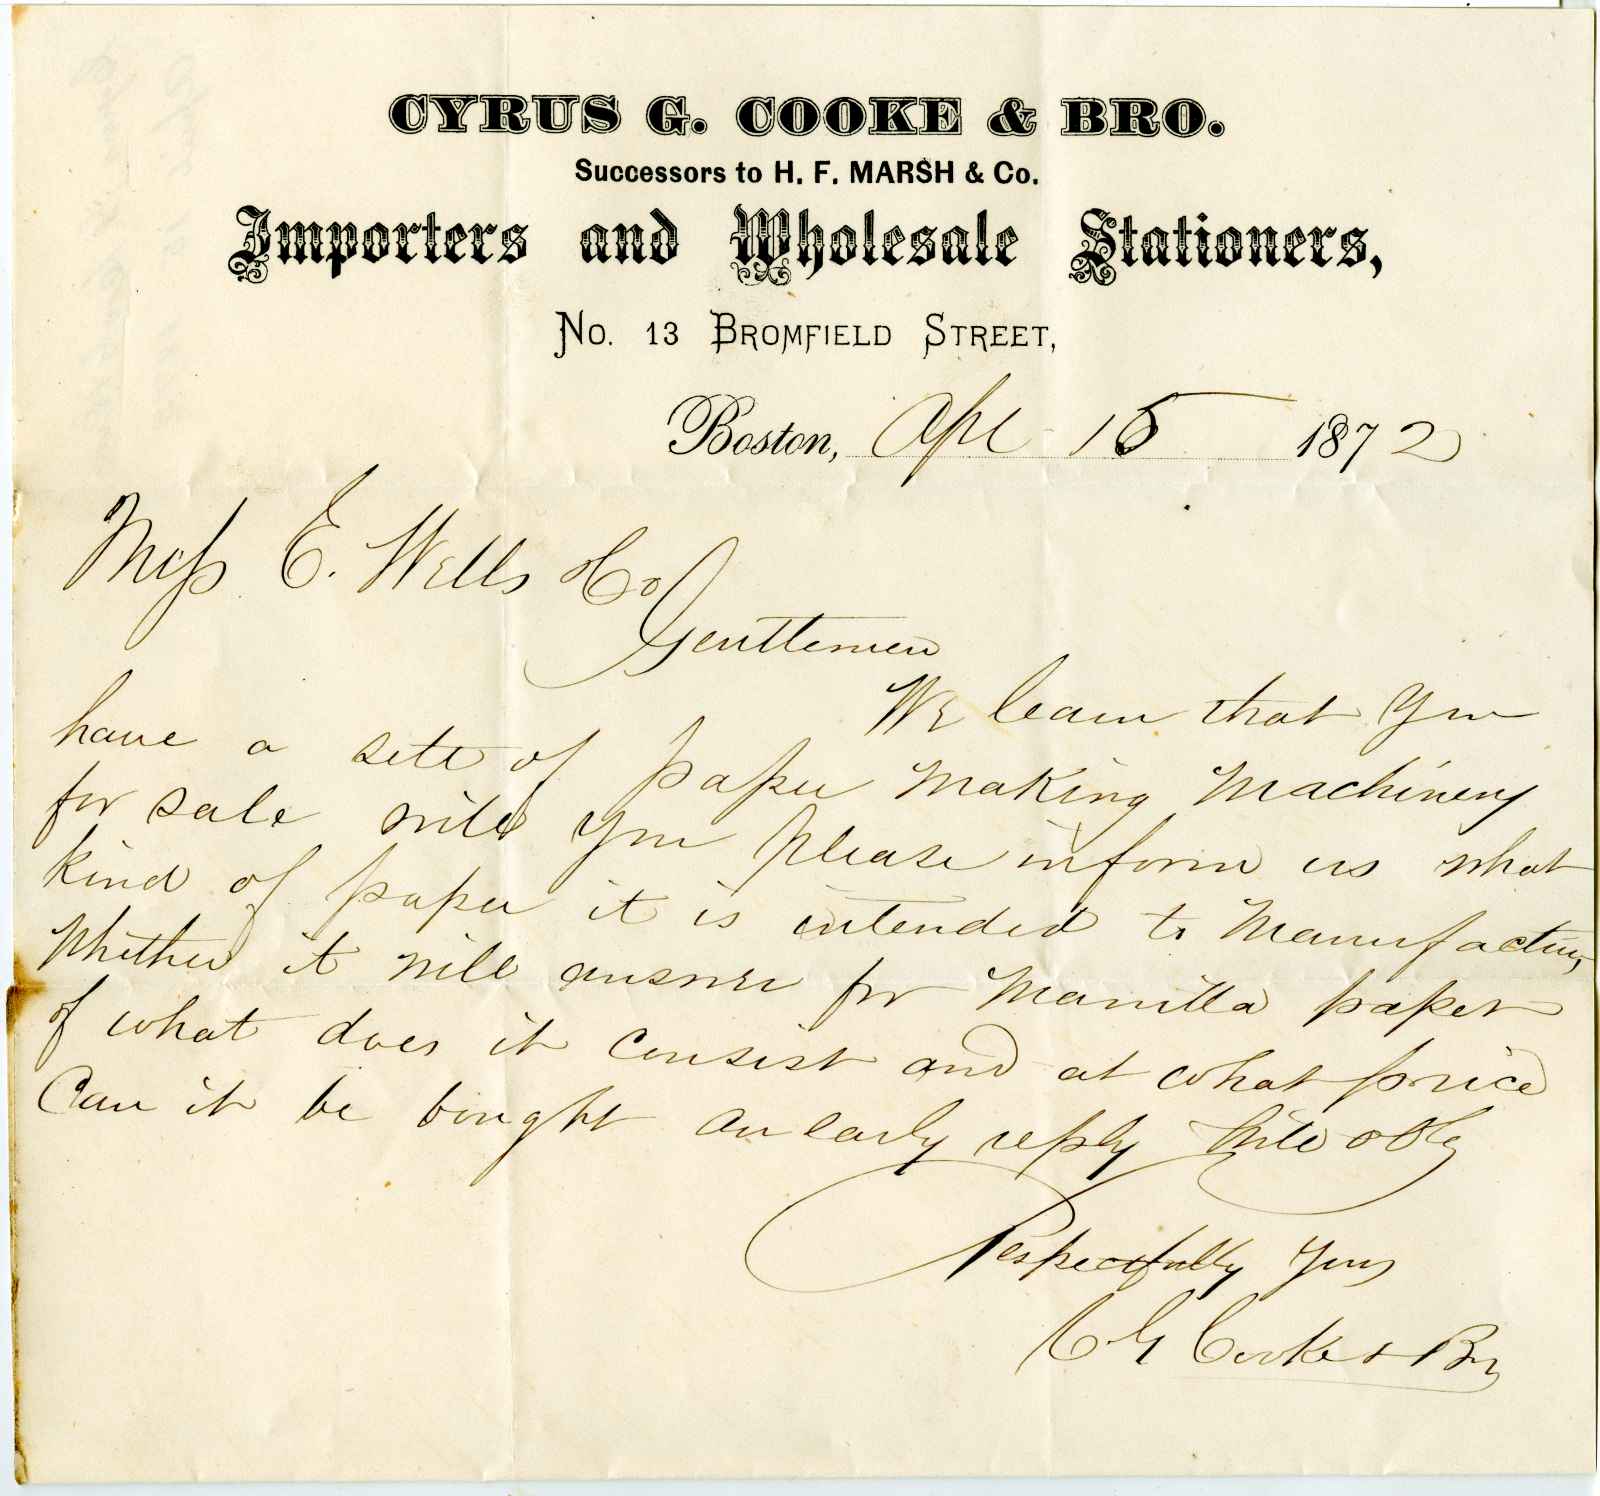 CYRUS G. COOKE & BRO.
Successors to H. F. MARSH & Co.
Importers and Wholesale Stationers,
No. 13 BROMFIELD STREET,
Boston, Apl 15 1872
Mess E. Wells Co
Gentlemen
We learn that you
have a sett of paper making machinery
for sale will you please inform us what
kind of paper it is intended to manufacture,
whether it will answer for Manilla paper
of what does it consist and at what price
Can it be bought an early reply will oblg
Respectfully Yours
C G Cooke & Bro